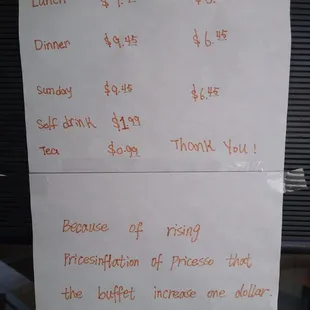 Lunch
Dinner $9.45 $6.45
Sunday $9.45 $6.45
Soft drink $1.99
Tea $0.99 Thank You!
Because of rising
Pricesinflation of Pricesso that
the buffet increase one dollar.